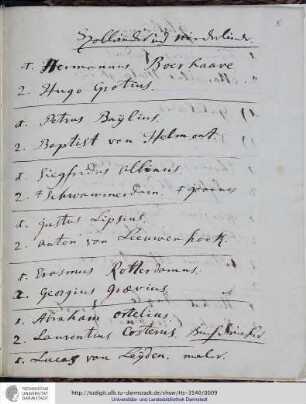 5
Holländer und Niederländer
1. Hermannus Boerhaave
2. Hugo Grotius.
1. Petrus Baÿlius.
2. Baptist van Helmont.
1. Siegfridus Albinus.
2. Schwammerdam. Joannes
1. Justus Lipsius.
2. Anton von Leeuwenhoek.
1. Erasmus Rotterdamus.
2. Georgius Grævius
1. Abraham Ortelius.
2. Laurentius Costerus.
1. Lucas van Leyden. maler.
TECHNISCHE
UNIVERSITÄT
DARMSTADT
http://tudigit.ulb.tu-darmstadt.de/show/Hs-3540/0009
Universitäts- und Landesbibliothek Darmstadt